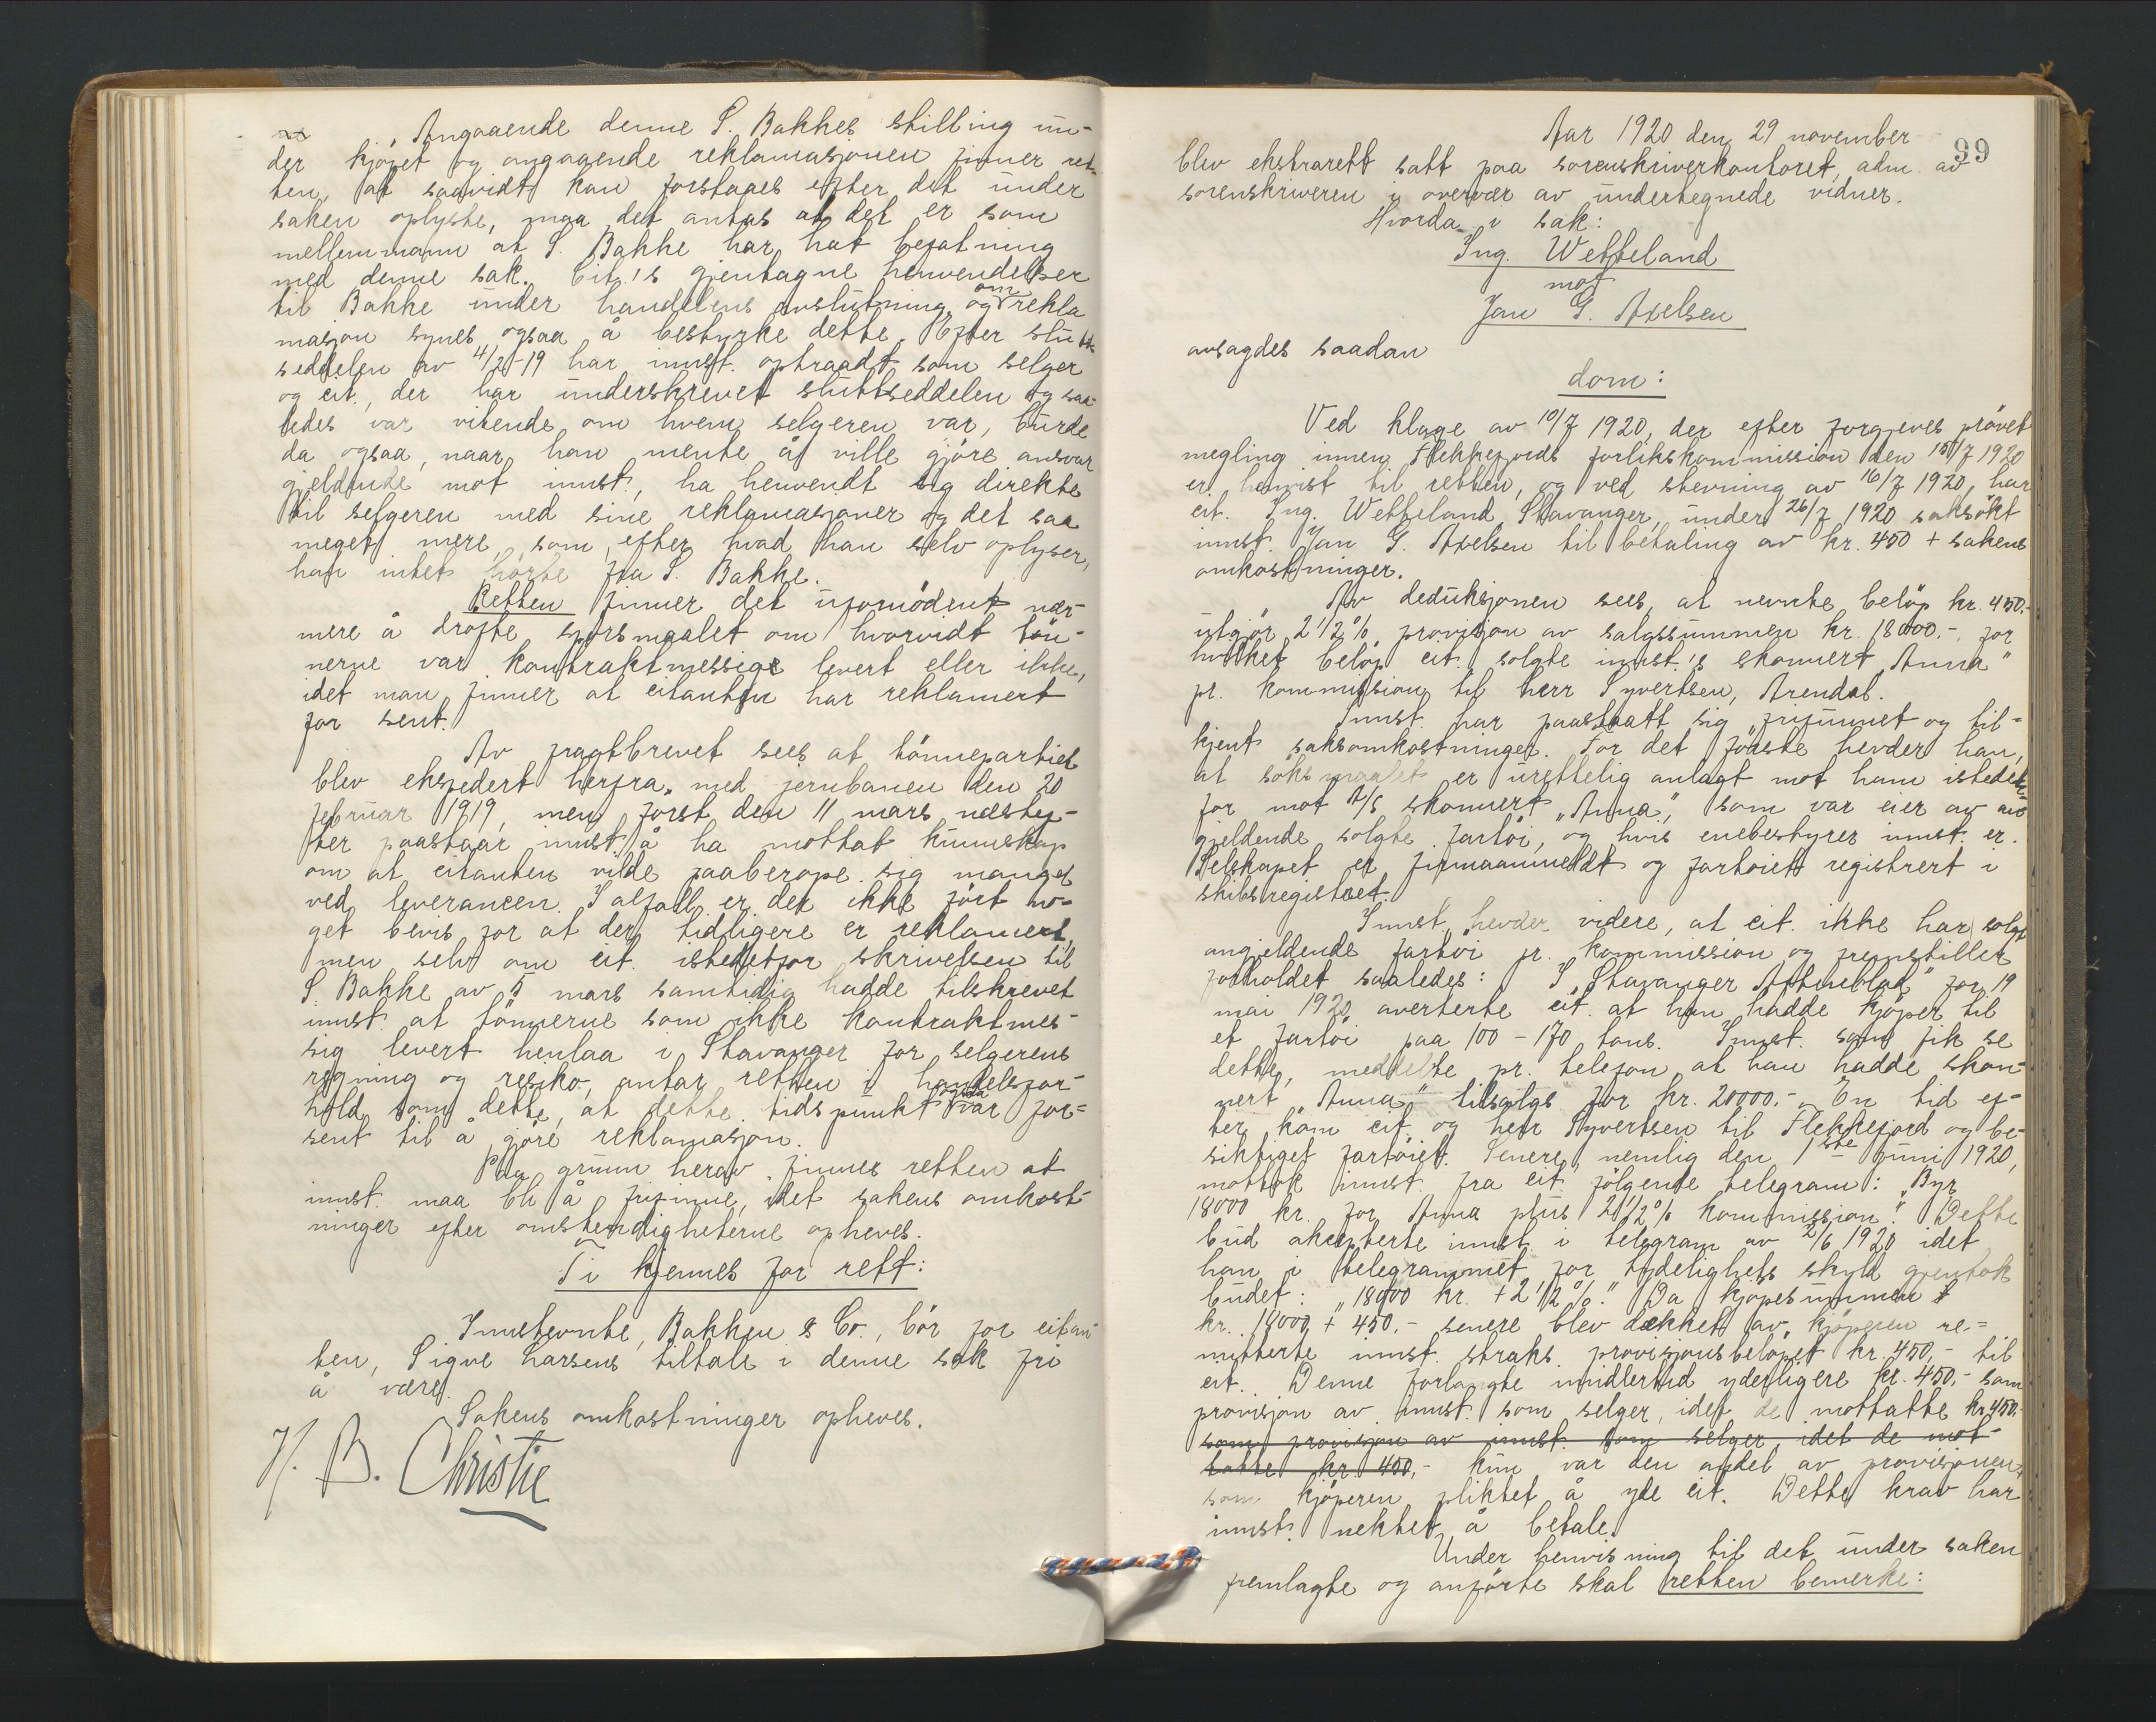 Angaaende denne S. Bakkes stilling un-
der kjöpet og angaaende reklamasjonen finner ret-
ten, at saavidt kan forstaaes efter det under
saken oplyste, maa det antas at det er som
mellemmann at S. Bakke har hat befatning
med denne sak. Cit.'s gjentagne henvendelser
til Bakke under handelens avslutning og om rekla
masjon synes ogsaa å bestyrke dette. Efter slutt-
seddelen av 4/2-19 har innst. optraadt som selger
og cit., der har underskrevet sluttseddelen og saa-
ledes var vitende om hvem selgeren var, burde
da ogsaa, naar han mente å ville gjöre ansvar
gjeldende mot innst., ha henvendt sig direkte
til selgeren med sine reklamasjoner og det saa
meget mere, som, efter hvad han selv oplyser,
han intet hörte fra S. Bakke.
Retten finner det ufornödent nær-
mere å dröfte spörsmaalet om hvorvidt tön-
nerne var kontraktmessige levert eller ikke,
idet man finner at citanten har reklamert
for sent.
Av fragtbrevet sees at tönnepartiet
blev ekspedert herfra med jernbanen den 20
februar 1919, men först den 11 mars næstef-
ter paastaar innst. å ha mottat kunnskap
om at citanten vilde paaberope sig mangel
ved leverancen. I alfall er det ikke fört no-
get bevis for at der tidligere er reklamert,
men selv om cit. istedetfor skrivelsen til
S. Bakke av 5 mars samtidig hadde tilskrevet
innst. at tönnerne som ikke kontraktmes-
sig levert henlaa i Stavanger for selgerens
regning og resiko, antar retten i handelsfor-
hold som dette, at dette tidspunkt var for-
sent til å gjöre reklamasjon.
Paa grunn herav finnes retten at
innst. maa bli å frifinne, idet sakens omkost-
ninger efter omstendigheterne opheves.
Ti kjennes for rett:
Innstevnte, Bakken & Co., bör for citan-
ten, Sigve Larsens tiltale i denne sak fri
å være.
Sakens omkostninger opheves.
H. B. Christie
99
Aar 1920 den 29 november
blev ekstrarett satt paa sorenskriverkontoret, adm. av
sorenskriveren i overvær av undertegnede vidner.
Hvorda i sak:
Ing. Wetteland
mot
Jan G. Axelsen
avsagdes saadan
dom:
Ved klage av 10/7 1920, der efter forgjeves prövet
megling innen Flekkefjords forlikskommission den 15/7 1920
er henvist til retten, og ved stevning av 16/7 1920, har
cit. Ing. Wetteland, Stavanger, under 26/7 1920 saksökt
innst. Jan G. Axelsen til betaling av kr. 450 + sakens
omkostninger.
Av deduksjonen sees, at nevnte belöp kr. 450.-
utgjör 2 1/2 % provisjon av salgssummen kr. 18000.-, for
hvilket belöp cit. solgte innst.'s skonnert "Anna"
pr. kommission til herr Syvertsen, Arendal.
Innst. har paastaatt sig frifunnet og til-
kjent saksomkostninger. For det förste hevder han,
at söksmaalet er urettelig anlagt mot ham istedet-
for mot A/S skonnert "Anna", som var eier av an-
gjeldende solgte fartöi, og hvis enebestyrer innst. er.
Selskapet er firmaanmeldt og fartöiett registrert i
skibsregistret.
Innst. hevder videre, at cit. ikke har solgt
angjeldende fartöi pr. kommission og fremstiller
forholdet saaledes: I "Stavanger Aftenblad" for 19
mai 1920 averterte cit. at han hadde kjöper til
et fartöi paa 100 - 170 tons. Innst. som fik se
dette, meddelte pr. telefon at han hadde skon-
nert "Anna" tilsalgs for kr. 20000.- En tid ef-
ter kom cit. og herr Syvertsen til Flekkefjord og be-
siktiget fartöiet. Senere, nemlig den 1ste juni 1920,
mottok innst. fra cit. fölgende telegram: "Byr
18000 kr. for Anna plus 2 1/2 % kommission". Dette
bud aksepterte innst. i telegram av 2/6 1920 idet
han i telegrammet for tydelighets skyld gjentok
budet: "18000 kr. + 2 1/2 %." Da kjöpesummen
kr. 18000 + 450.- senere blev dækket av kjöperen re-
mitterte innst. straks provisjonsbelöpet kr. 450,- til
cit. Denne forlangte imidlertid yderligere kr. 450,- som
provisjon av innst. som selger, idet de mottatte kr. 450.-
som provisjon av innst. som selger, idet de mot-
tatte kr. 450,- kun var den andel av provisjonen,
som kjöperen pliktet å yde cit. Dette krav har
innst. nektet å betale.
Under henvisning til det under saken
fremlagte og anförte skal retten bemerke: